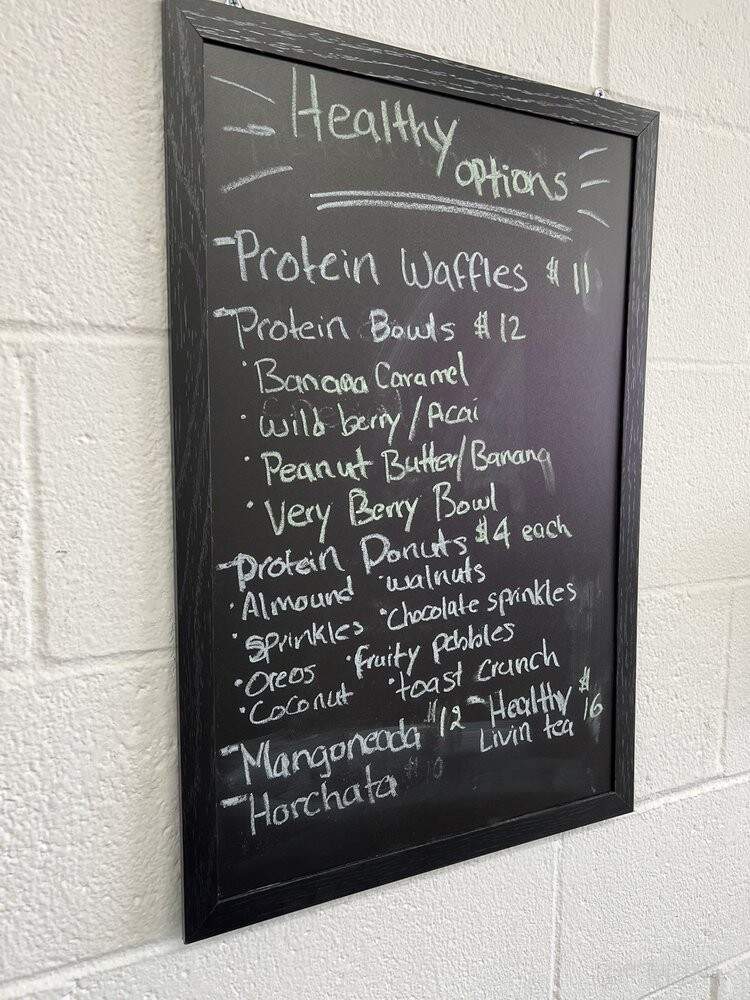 Healthy
options
- Protein Waffles $11
- Protein Bowls $12
· Banana Caramel
· wild berry / Acai
· Peanut Butter/Banana
· Very Berry Bowl
- Protein Donuts $4 each
· Almound · walnuts
· sprinkles · chocolate sprinkles
· Oreos · fruity pebbles
· Coconut · toast crunch
- Mangoneada $12 - Healthy $16
Livin tea
- Horchata $10